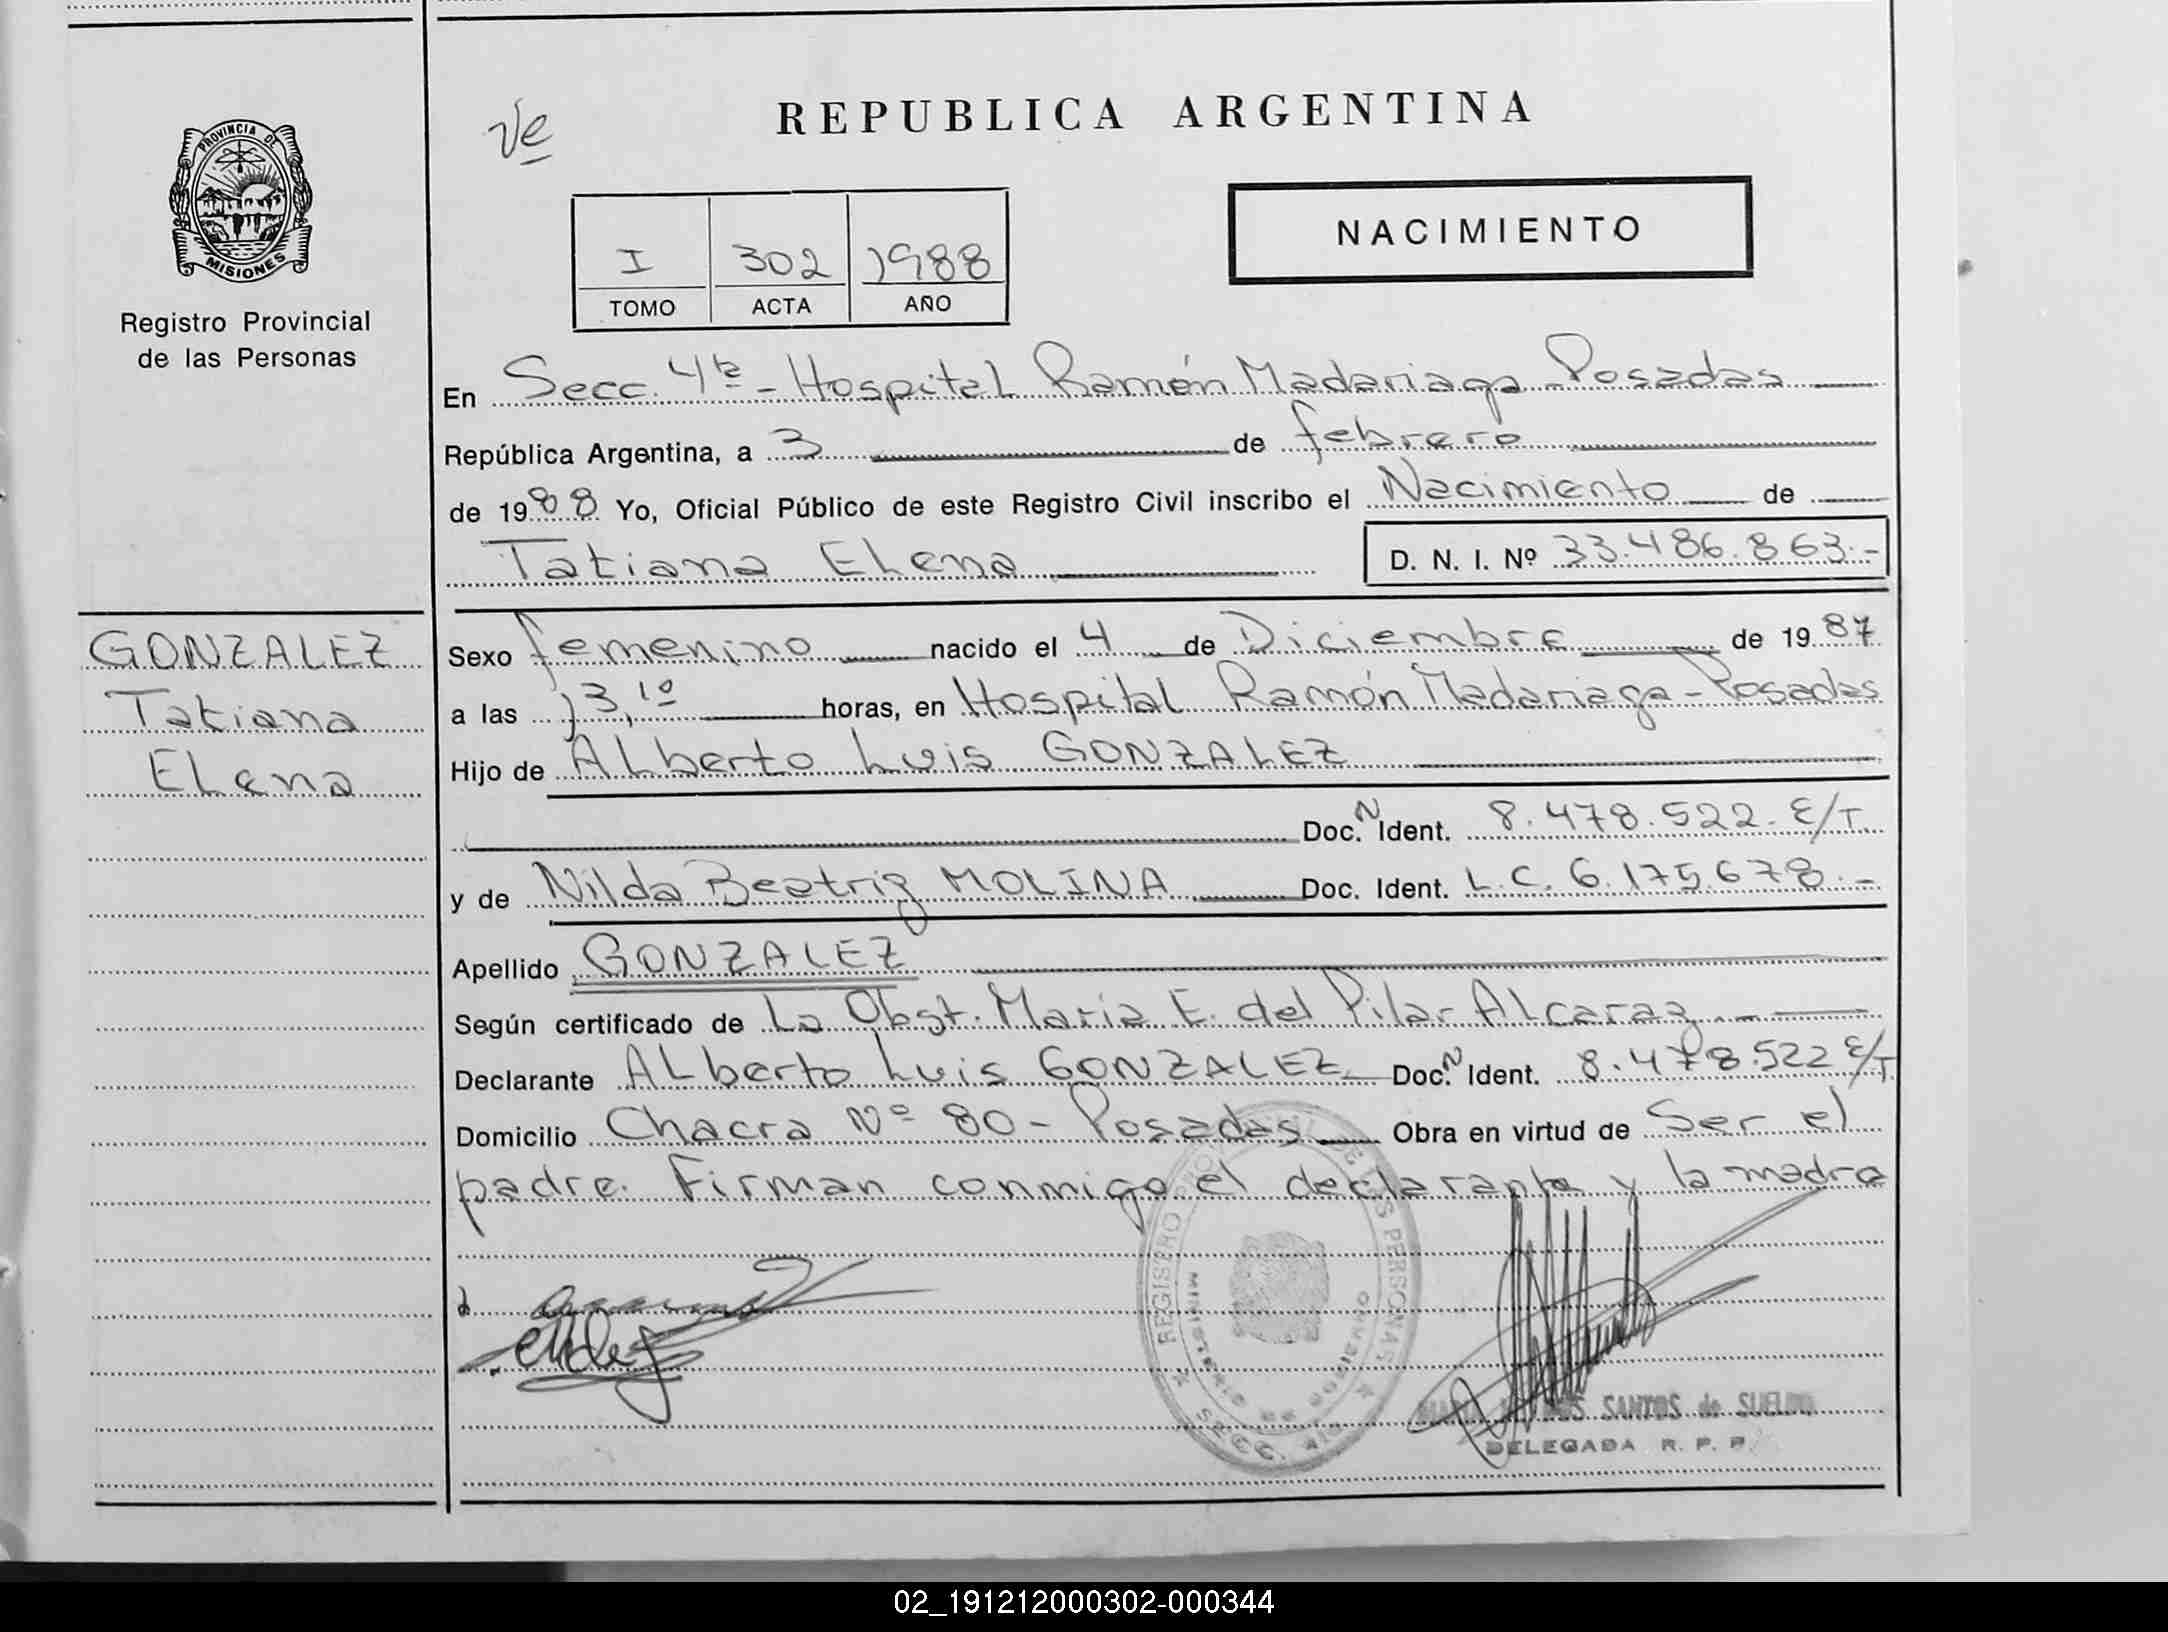 PROVINCIA DE
MISIONES
Registro Provincial
de las Personas
Ve
REPUBLICA ARGENTINA
NACIMIENTO
I 302 1988
TOMO ACTA AÑO
En Secc. 4ta - Hospital Ramón Madariaga - Posadas
República Argentina, a 3 de febrero
de 1988 Yo, Oficial Público de este Registro Civil inscribo el Nacimiento de
Tatiana Elena D. N. I. Nº 33.486.863.-
GONZALEZ
Tatiana
Elena
Sexo femenino nacido el 4 de Diciembre de 1987
a las 13,10 horas, en Hospital Ramón Madariaga - Posadas
Hijo de Alberto Luis GONZALEZ
Doc. N Ident. 8.478.522. E/T.
y de Nilda Beatriz MOLINA Doc. Ident. L.C. 6.175.678.-
Apellido GONZALEZ
Según certificado de La Obst. María E. del Pilar Alcaraz.-
Declarante Alberto Luis GONZALEZ Doc. N Ident. 8.478.522 E/T
Domicilio Chacra Nº 80 - Posadas Obra en virtud de Ser el
padre. Firman conmigo el declarante y la madre
REGISTRO PROVINCIAL DE LAS PERSONAS
MINISTERIO DE GOBIERNO
SECC.
SANTOS de SUELDO
DELEGADA R. P. P.
02_191212000302-000344